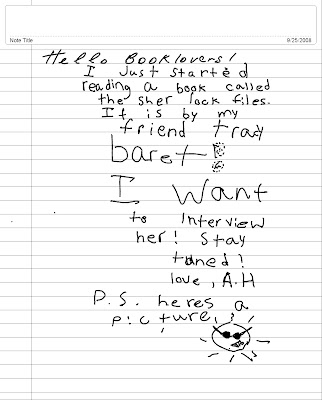 Note Title
9/25/2008
Hello Booklovers!
I Just started
reading a book called
the sher lock files.
It is by my
friend tracy
baret!!
I Want
to Interview
her! Stay
tuned!
love, A.H
P.S. heres a
picture,